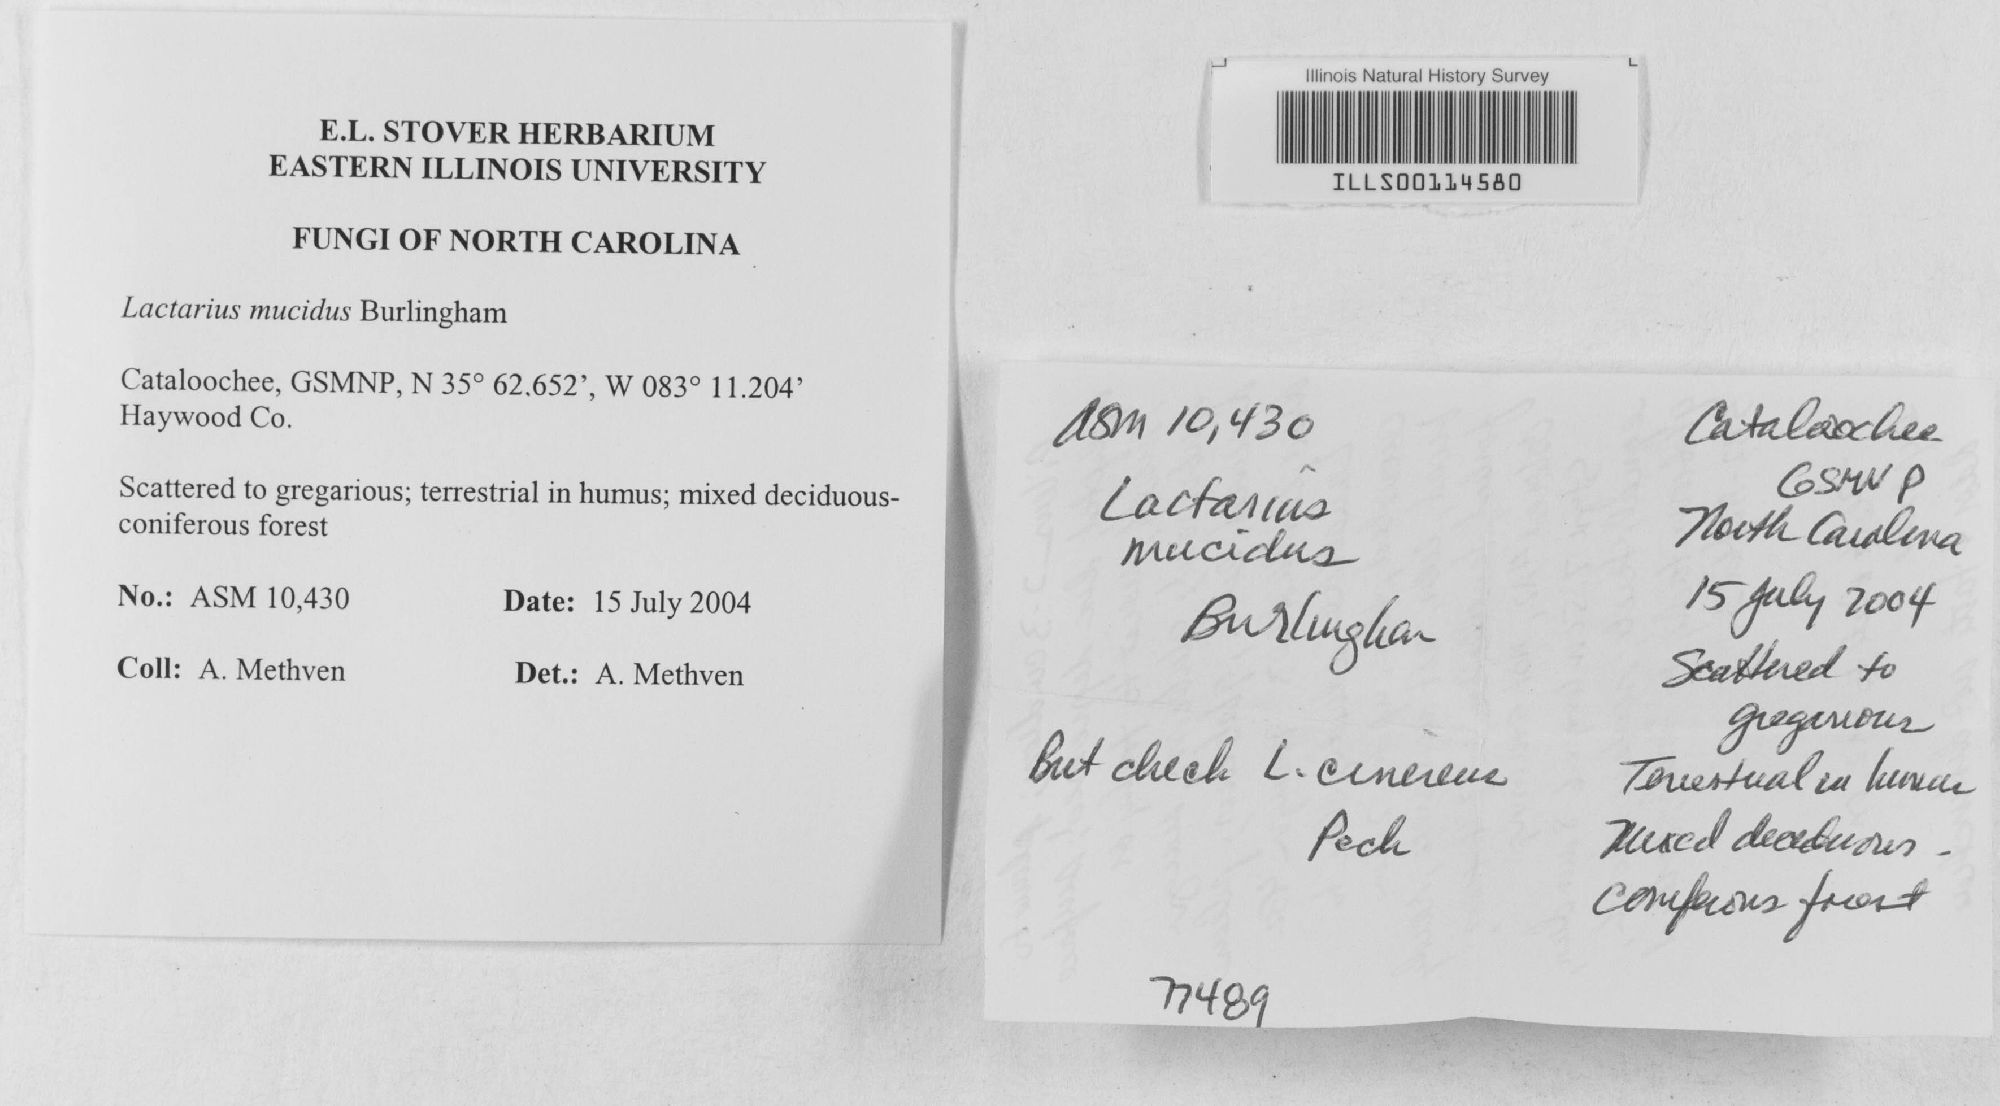 E.L. STOVER HERBARIUM
EASTERN ILLINOIS UNIVERSITY
FUNGI OF NORTH CAROLINA
Lactarius mucidus Burlingham
Cataloochee, GSMNP, N 35° 62.652’, W 083° 11.204’
Haywood Co.
Scattered to gregarious; terrestrial in humus; mixed deciduous-
coniferous forest
No.: ASM 10,430 Date: 15 July 2004
Coll: A. Methven Det.: A. Methven
Illinois Natural History Survey
ILLS00114580
ASM 10,430
Lactarius
mucidus
Burlingham
But check L. cinereus
Peck
77489
Cataloochee
GSMNP
North Carolina
15 July 2004
Scattered to
gregarious
Terrestrial in humus
Mixed deciduous -
coniferous forest